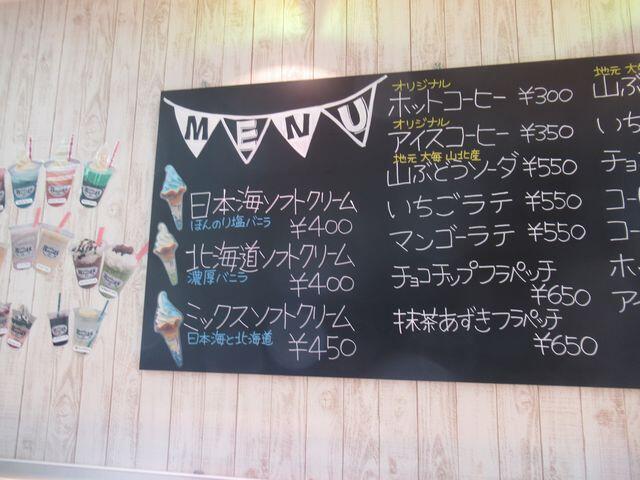 MENU
日本海ソフトクリーム
ほんのり塩バニラ
¥400
北海道ソフトクリーム
濃厚バニラ
¥400
ミックスソフトクリーム
日本海と北海道
¥450
オリジナル
ホットコーヒー ¥300
オリジナル
アイスコーヒー ¥350
地元 大毎 山北産
山ぶどうソーダ ¥550
いちごラテ ¥550
マンゴーラテ ¥550
チョコチップフラペッチ
¥650
抹茶あずきフラペッチ
¥650
地元 大毎
山ぶ
いち
チョコ
コー
コー
ホッ
アイ